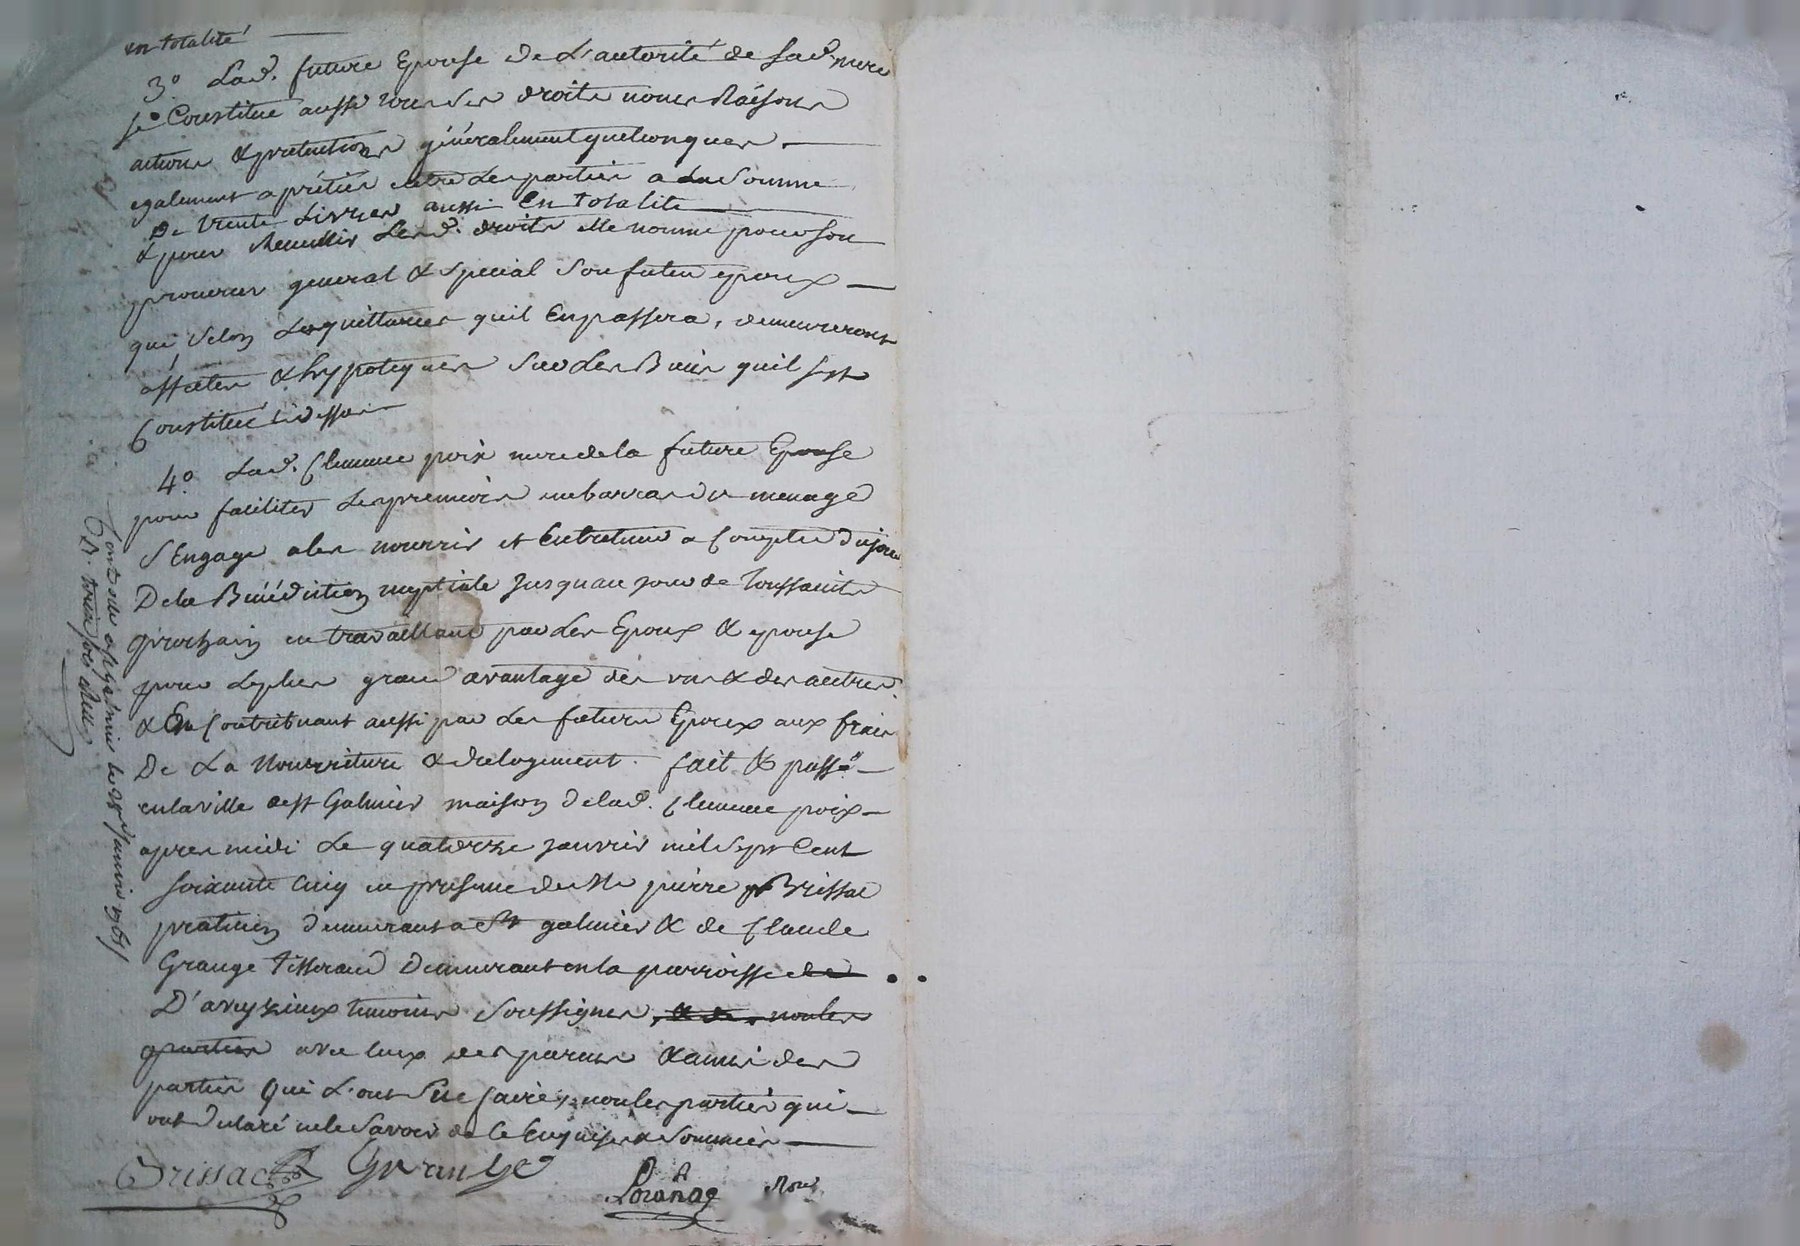 en totalité
3° Lad. future Epouse de L'autorité de sad. mere
se Constitue aussi tous ses droits noms Raisons
actions & pretentions généralement quelconques
egalement apretiés entre les parties a la Somme
De trente Livres aussi En totalité
& pour Recueillir Lesd. droits elle nomme pour son
procureur general & special son futur epoux
qui selon Les quittances quil En passera, demeureront
affectés & hypotequés sur Les Biens quil sest
Constitué cidessus
4° Lad. Clemence poix mere de la future Epouse
pour faciliter Les premiers embarras du menage
s'Engage a les nourrir et Entretenir a Compter du jour
De la Bénédiction nuptiale jusquau jour de toussaints
prochain en travaillant par Les Epoux & epouse
pour Le plus grand avantage des uns & des autres
& En Contribuant aussi par Les futurs Epoux aux frais
De La Nourriture & du logement. fait & passé
en la ville de st Galmier maison de lad. Clemence poix
apres midi Le quatorze janvier mil sept Cent
soixante Cinq en presence de Me pierre Brissac
praticien demeurant a St galmier & de Claude
Grange tisserand Demeurant en la parroisse de
D'aveyzieux temoins soussignés, & de non les
parties avec eux des parens & amis des
parties qui L'ont sçu faire, non les parties qui
ont declaré ne le savoir de ce Enquis & sommés
Brissac Grange
Controllé a st galmier le 28 janvier 1765
R. treize sols